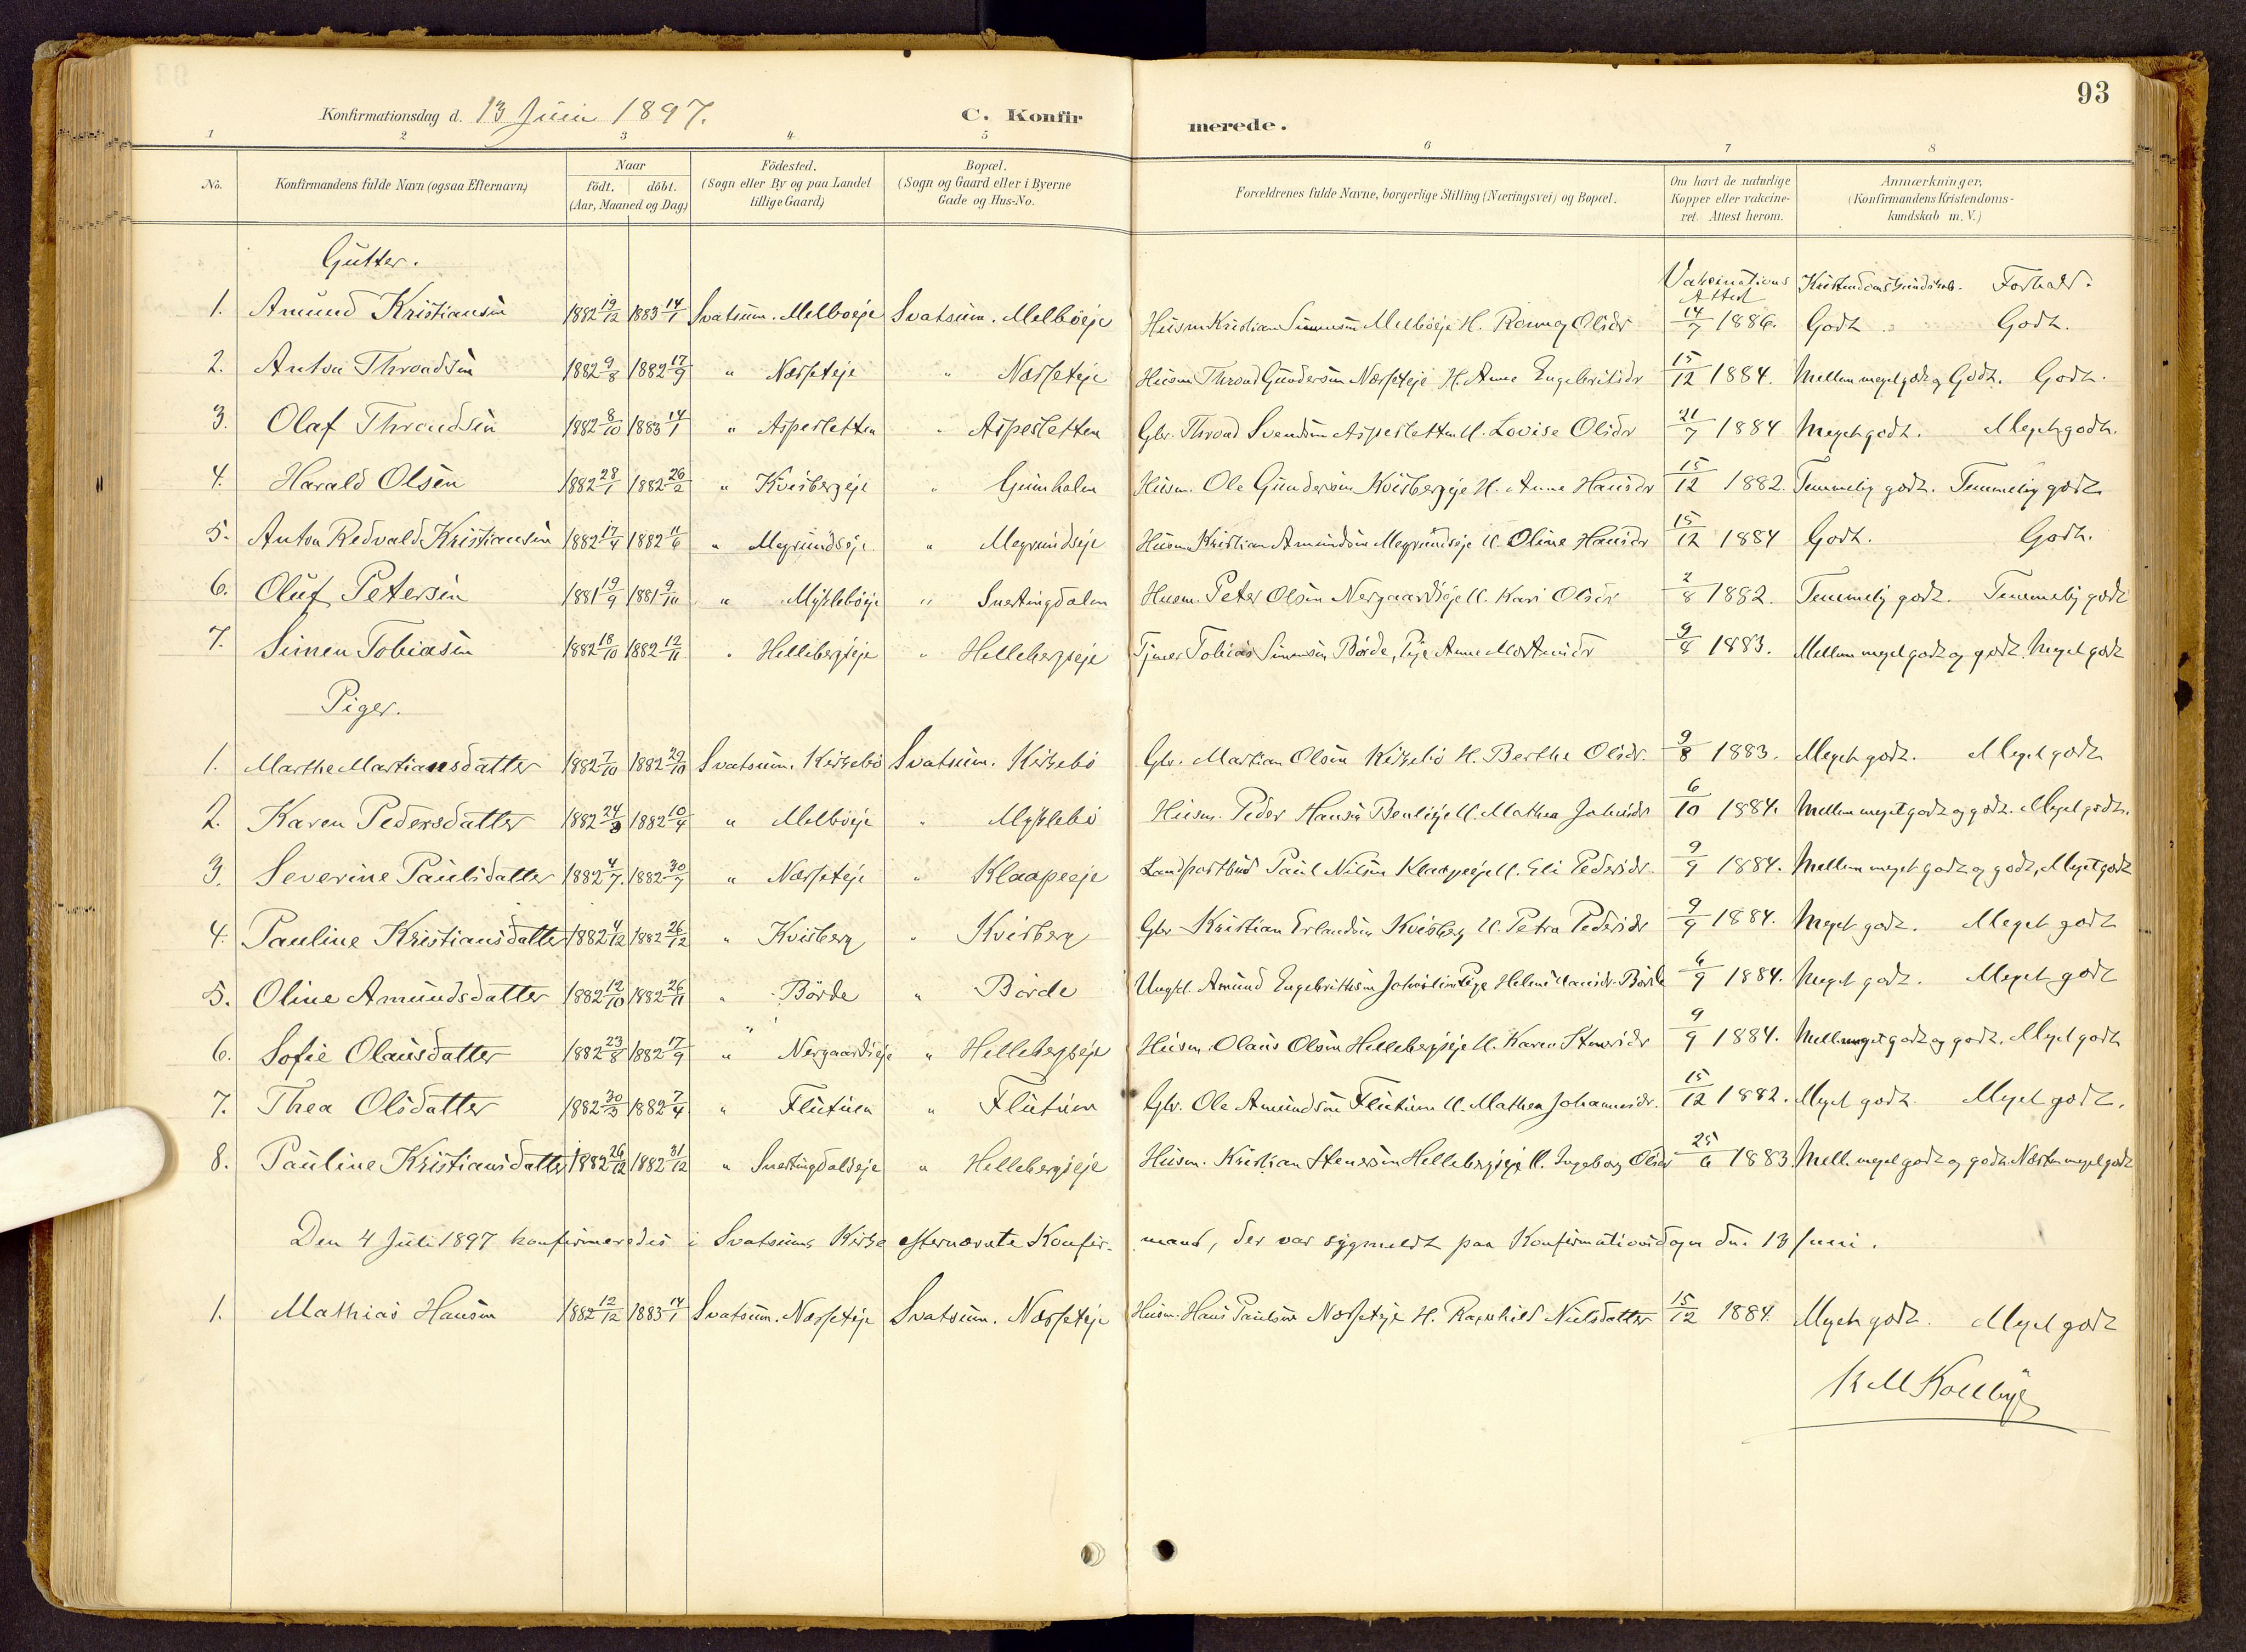 93
Konfirmationsdag d. 13 Juni 1897. C. Konfirmerede.
1 2 3 4 5 6 7 8
No. Konfirmandens fulde Navn (ogsaa Efternavn) Naar födt. döbt. (Aar, Maaned og Dag) Födested. (Sogn eller By og paa Landet tillige Gaard) Bopæl. (Sogn og Gaard eller i Byerne Gade og Hus-No. Forældrenes fulde Navne, borgerlige Stilling (Næringsvei) og Bopæl. Om havt de naturlige Kopper eller vakcineret. Attest herom. Anmærkninger, (Konfirmandens Kristendomskundskab m. V.)
Gutter. Vakcinations Attest Kristendomskundskab. Forhold.
1. Amund Kristiansen 1882 19/12 1883 14/1 Svatsum. Melboeje Svatsum. Melböeje Husm Kristian Simensen Melböeje H. Ronnog Olsdr 14/7 1886. Godt. Godt.
2. Anton Throndsen 1882 9/8 1882 17/9 " Næsseteje " Næsseteje Husm Thrond Gundersen Næsseteje H. Anne Engebritsdr 15/12 1884. Mellem meget godt og Godt. Godt.
3. Olaf Throndsen 1882 8/10 1883 14/1 " Aspesletten " Aspesletten Gbr. Thrond Svendsen Aspesletten H. Lovise Olsdr 21/7 1884 Meget godt. Meget godt.
4. Harald Olsen 1882 28/1 1882 26/2 " Kvisbergeje " Husm. Ole Gundersen Kvisbergeje H. Anne Hansdr 15/12 1882. Temmelig godt. Temmelig godt
5. Anton Redvald Kristiansen 1882 17/4 1882 11/6 " Megrundseje " Megrundseje Husm Kristian Amundsen Megrundseje H. Oline Hansdr 15/12 1884 Godt. Godt.
6. Oluf Petersen 1881 19/9 1881 9/10 " Mykleböeje " Snertingdalen Husm. Peter Olsen Nergaardseje H. Kari Olsdr 2/8 1882. Temmelig godt. Temmelig godt
7. Simen Tobiasen 1882 18/10 1882 12/11 " Hellebergseje " Hellebergseje Tjener Tobias Simensen Börde, Pige Anne Mortensdr 9/8 1883. Mellem meget godt og godt. Meget godt
Piger.
1. Marthe Martiansdatter 1882 7/10 1882 29/10 Svatsum. Kirkebö Svatsum. Kirkebö Gbr. Martian Olsen Kirkebö H. Berthe Olsdr. 9/8 1883. Meget godt. Meget godt
2. Karen Pedersdatter 1882 24/3 1882 10/4 " Melböeje " Myklebö Husm. Peder Hansen H. Mathea Johansdr 6/10 1884. Mellem meget godt og godt. Meget godt.
3. Severine Paulsdatter 1882 4/7. 1882 30/7 " Næsseteje " Klaapeeje Landpostbud Paul Nilsen Klaapeeje H. Eli Pedersdr. 9/9 1884. Mellem meget godt og godt, Meget godt
4. Pauline Kristiansdatter 1882 4/12 1882 26/12 " Kvisberg " Kvisberg Gbr Kristian Erlandsen Kvisberg H. Petra Pedersdr 9/9 1884. Meget godt. Meget godt
5. Oline Amundsdatter 1882 12/10 1882 26/11 " Börde " Börde Ungkl. Amund Engebritsen Pige Helene Hansdr. Börde 6/9 1884. Meget godt. Meget godt
6. Sofie Olausdatter 1882 23/8 1882 17/9 " Nergaardseje " Hellebergseje Husm. Olaus Olsen Hellebergseje H. Karen Stenersdr 9/9 1884. Mell. meget godt og godt. Meget godt
7. Thea Olsdatter 1882 30/3 1882 7/4 " Flutuen " Flutuen Gbr. Ole Amundsen Flutuen H. Mathea Johannesdr. 15/12 1882. Meget godt. Meget godt.
8. Pauline Kristiansdatter 1882 26/12 1882 31/12 " Snertingdalseje " Hellebergseje Husm. Kristian Stenersen Hellebergseje H. Ingeborg Olsdr 25/6 1883. Mell. meget godt og godt. Næsten meget godt
Den 4 Juli 1897 konfirmeredes i Svatsums Kirke efternævnte Konfirmand, der var sygmeldt paa Konfirmationsdagen den 13 Juni.
1. Mathias Hansen 1882 12/12 1883 14/1 Svatsum. Næsseteje Svatsum. Næsseteje Husm. Hans Paulsen Næsseteje H. Ragnhild Nielsdatter 15/12 1884. Meget godt. Meget godt